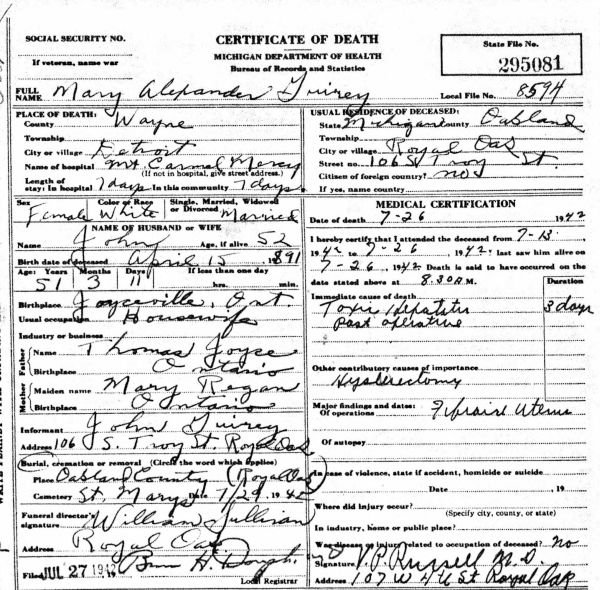 SOCIAL SECURITY NO.
If veteran, name war
CERTIFICATE OF DEATH
MICHIGAN DEPARTMENT OF HEALTH
Bureau of Records and Statistics
State File No.
295081
FULL NAME Mary Alexander Guirey Local File No. 8594
PLACE OF DEATH:
County Wayne
Township
City or village Detroit
Name of hospital Mt Carmel Mercy
(If not in hospital, give street address.)
Length of stay: In hospital 7 days. In this community 7 days.
USUAL RESIDENCE OF DECEASED:
State Michigan County Oakland
Township
City or village Royal Oak
Street no. 106 S Troy St.
Citizen of foreign country? no
If yes, name country
Sex Female Color or Race White Single, Married, Widowed or Divorced Married
NAME OF HUSBAND OR WIFE
Name John Age, if alive 52
Birth date of deceased April 15 1891
Age: Years 51 Months 3 Days 11 If less than one day hrs. min.
Birthplace Joyceville, Ont.
Usual occupation Housewife
Industry or business
Father Name Thomas Joyce
Birthplace Ontario
Mother Maiden name Mary Regan
Birthplace Ontario
Informant John Guirey
Address 106 S. Troy St. Royal Oak
Burial, cremation or removal (Circle the word which applies)
Place Oakland County (Royal Oak)
Cemetery St. Marys Date 7/29 1942
Funeral director's signature William Sullivan
Address Royal Oak
Filed JUL 27 1942
Local Registrar
MEDICAL CERTIFICATION
Date of death 7-26 1942
I hereby certify that I attended the deceased from 7-13
1942 to 7-26, 1942. last saw him alive on
7-26, 1942 Death is said to have occurred on the
date stated above at 8.30 A.M. Duration
Immediate cause of death
Toxic Hepatitis 3 days
Post operative
Other contributory causes of importance
Hysterectomy
Major findings and dates:
Of operations Fibroid Uterus
Of autopsy
In case of violence, state if accident, homicide or suicide
Date 19
Where did injury occur?
(Specify city, county, or state)
In industry, home or public place?
Was disease or injury related to occupation of deceased? No
Signature V.P. Russell M.D.
Address 107 W 4th St Royal Oak